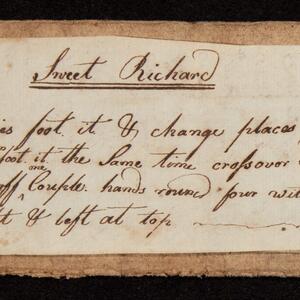 Sweet Richard
ies foot it & change places
foot it the same time crossover
off one Couple hands round four wi
t & left at top